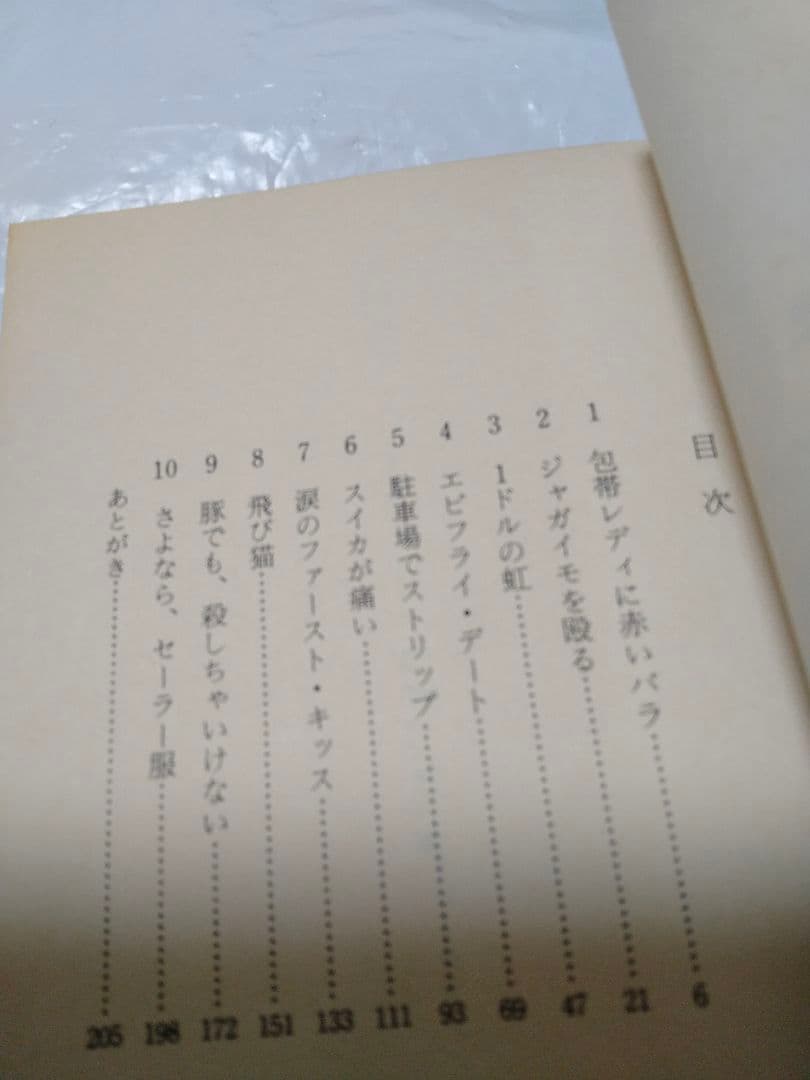 目次
1 包帯レディに赤いバラ……6
2 ジャガイモを殴る……21
3 1ドルの虹……47
4 エビフライ・デート……69
5 駐車場でストリップ……93
6 スイカが痛い……111
7 涙のファースト・キッス……133
8 飛び猫……151
9 豚でも、殺しちゃいけない……172
10 さよなら、セーラー服……198
あとがき……205